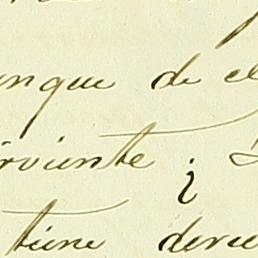 unque de el
rviente ¿
tiene derec